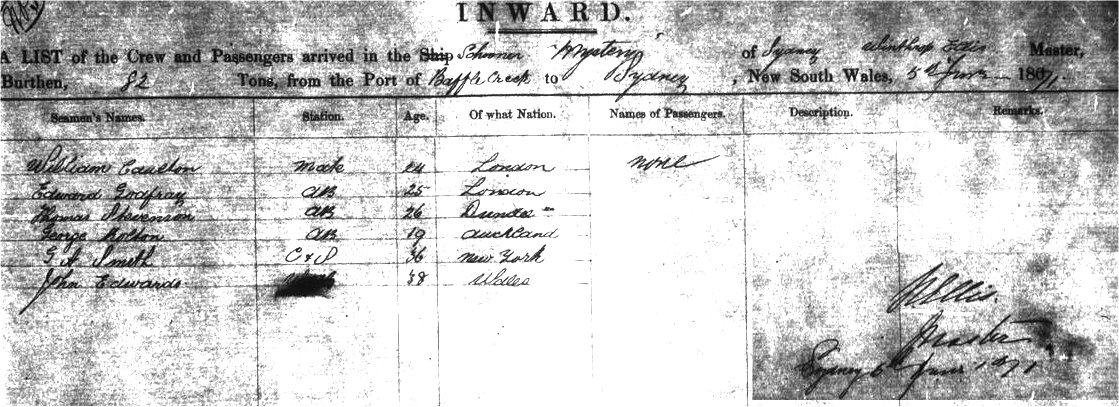 INWARD.
A LIST of the Crew and Passengers arrived in the Ship Schooner "Mystery" of Sydney Winthrop Ellis Master,
Burthen, 82 Tons, from the Port of Baffle Creek to Sydney, New South Wales, 5th June 1871.
Seamen's Names. Station. Age. Of what Nation. Names of Passengers. Description. Remarks.
William Mate 24 London none
Edward Godfray AB 25 London
Thomas Stevenson AB 26 Dundee
George Bolton AB 19 Auckland
G A Smith C & S 36 New York
John Edwards 38 Wales
W Ellis.
Master
Sydney 6th June 1871